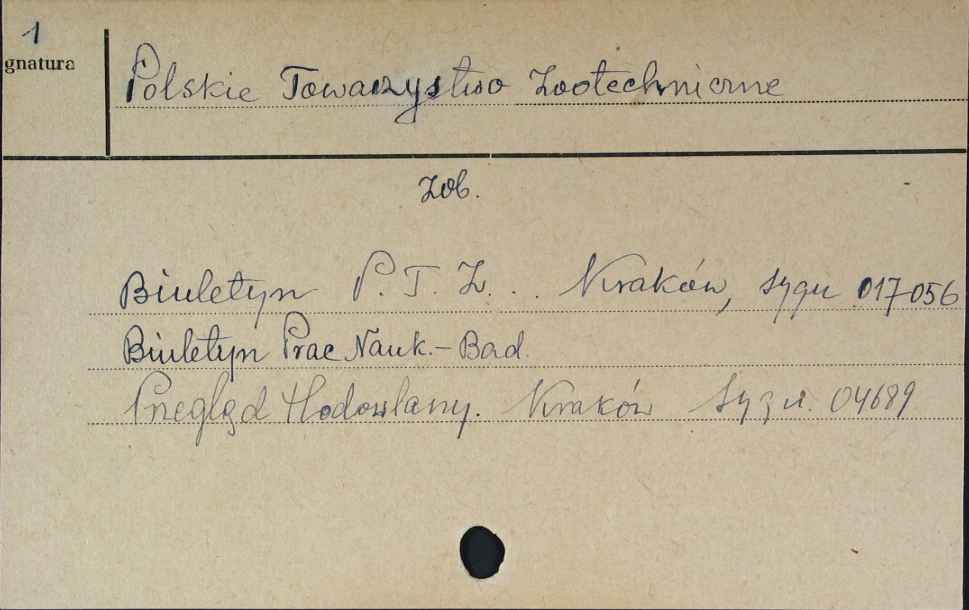 1
gnatura
Polskie Towarzystwo Zootechniczne
zob.
Biuletyn P.T.Z. . . Kraków, sygn. 017056
Biuletyn Prac Nauk.-Bad.
Przegląd Hodowlany. Kraków Sygn. 04689